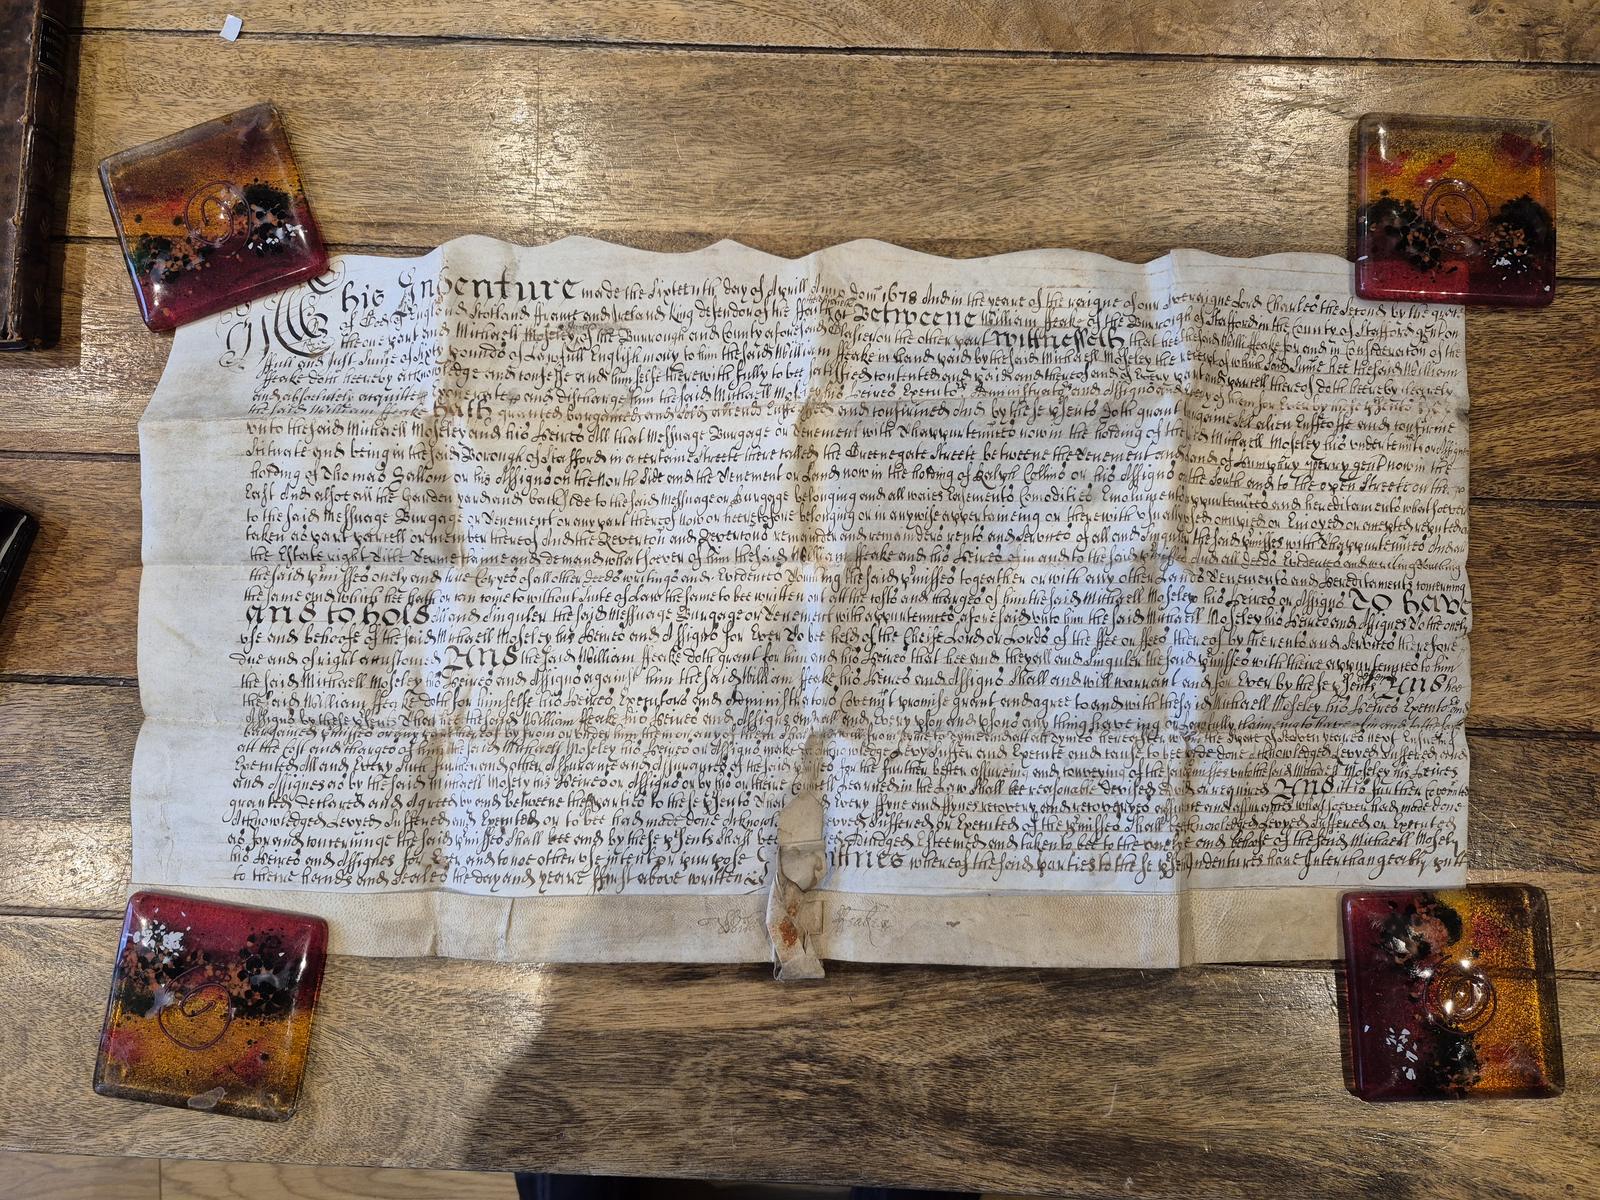 This Indenture made the sixteenth day of Aprill Anno Dom 1678 And in the yeare of the raigne of our Soveraigne Lord Charles the second by the grace
of God of England Scotland ffrance and Ireland King defendor of the ffaith Betweene William ffeake of the Burrough of Stafford in the County of Stafford gent on
the one part And Michaell Moseley of the Burrough and County aforesaid on the other part Witnesseth that hee the said Willi ffeake for and in Consideration of the
ffull and Just summe of pounds of Lawfull English mony to him the said William ffeake in hand paid by the said Michaell Moseley the receipt of which said summe hee the said William
ffeake doth hereby acknowledge and confesse and him selfe therewith fully to bee satisfied contented and paid and thereof and of every part and parcell thereof doth heereby cleerely
and absolutely acquitte and discharge him the said Michaell Moseley his heires Executors Administrators and Assignes of them for ever by these presents
the said William ffeake hath granted bargained and sold aliend and confirmed And by these presents doth grant bargaine sell alien Enfeoffe and confirme
unto the said Michaell Moseley and his heires All that Messuage Burgage or Tenement with Thappurtennces now in the holding of the said Michaell Moseley his undertennts or Assignes
Scituate and being in the said Borough of Stafford in a certaine streete there called the Greenegate streete betweene the Tenement and Land of gent now in the
holding of Thomas or his Assignes on the North side and the Tenement or Land now in the holding of Ralph Collins or his Assignes on the South and to the open streete on the
East And alsoe all the Garden yard and backside to the said Messuage or Burgage belonging and all waies Easements Comodities Emolumts appurtennces and hereditaments whatsoever
to the said Messuage Burgage or Tenement or any part thereof now or heeretofore belonging or in any wise appertaineing or therewith usually used occupied or Enjoyed or accepted reputed
taken as part parcell or member thereof And the Revercon and Revercons remainder and remainders rents and services of all and singuler the said premisses with Thappurtennces And all
the Estate right Title Terme and demand whatsoever of him the said William ffeake and his heires in and to the said And all deeds Evidences and writings touching
the said premisses onely and true Copyes of all other deeds writings and Evidences touching the said premisses togeather or with any other Lands Tenements and Hereditaments concerning
the same and which hee hath or can come to without suite of Law the same to bee written out att the costs and charges of him the said Michaell Moseley his heires or Assignes To have
and to hold all and singuler the said Messuage Burgage or Tenement with appurtennces aforesaid unto him the said Michaell Moseley his heires and Assignes To the onely
use and behoofe of the said Michaell Moseley his heires and Assignes for Ever To bee held of the Cheife Lord or Lords of the ffee or ffees thereof by the rents and services therefore
due and of right accustomed And the said William ffeake doth grant for him and his heires that hee and they all and singuler the said premisses with there appurtennces to him
the said Michaell Moseley his heires and Assignes against him the said William ffeake his heires and Assignes shall and will warrant and for Ever by these presents And hee
the said William ffeake doth for himselfe his heires Executors and Administrators Covennt promise grant and agree to and with the said Michaell Moseley his heires Executors and
Assignes by these presents That hee the said William ffeake his heires and Assignes and all and every pson and psons any thing haveing or
bargained premisses or any by from or under him them or any of them shall from tyme to tyme and att all tymes hereafter the space of seven yeares next
att the cost and charges of him the said Michaell Moseley his heires or Assignes make acknowledge Levy suffer and Execute and cause to bee made done acknowledged Levyed suffered and
Executed All and Every such further and other Assurance and Assurances of the said premisses for the further better assureing and conveying of the said premisses unto the said Michaell Moseley his heires
and Assignes as by the said Michaell Mosely his heires or Assignes or by his or there Councell Learned in the Law shall bee reasonable devised or required And it is further Covennted
granted declared and Agreed by and betweene the parties to these presents That Every ffyne and ffynes recovery and recoveryes Assurance and assurances whatsoever had made done
Acknowledged Levyed suffered and Executed or to bee had made done Acknowledged Levyed suffered or Executed of the premisses shall acknowledged Levyed suffered or Executed
as for and concerninge the said premisses shall bee and by these presents shall bee adiudged Esteemed and taken to bee to the onely use and behoofe of the said Michaell Mosely
his heires and Assignes for Ever and to noe other use intent or purpose In Witnes whereof the said parties to these present Indentures have Interchangeably putt
to theire hands and seales the day and yeare ffirst above written
ffeake